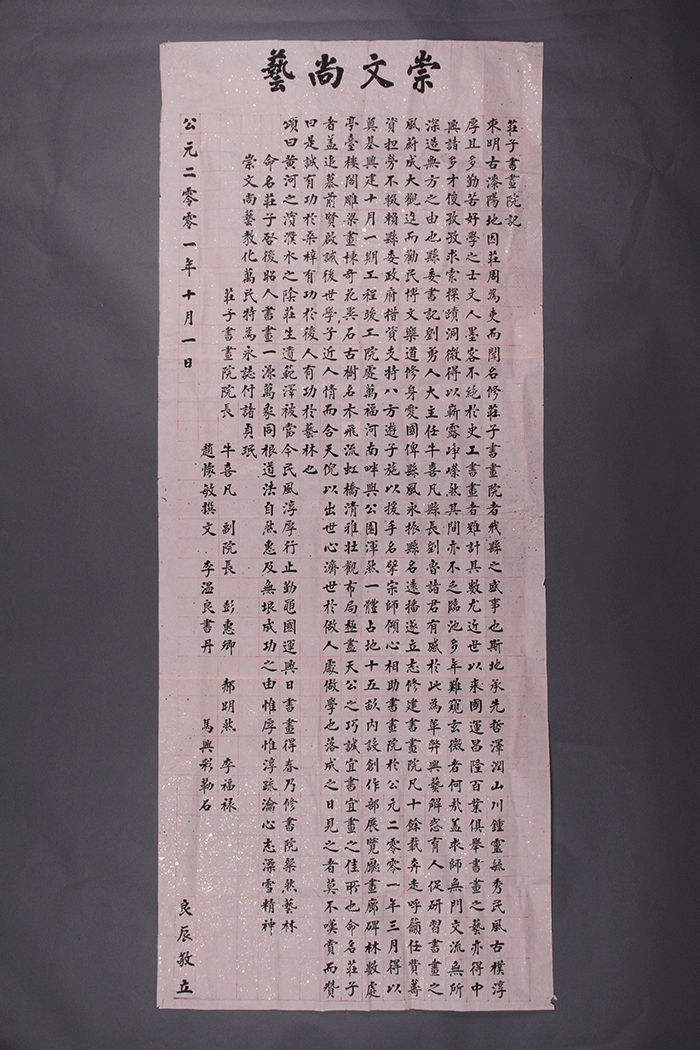 崇文尚藝
莊子書畫院記
東明古漆陽地因莊周為吏而聞名修莊子書畫院者我縣之盛事也斯地承先哲澤潤山川鍾靈毓秀民風古樸淳
厚且多勤苦好學之士文人墨客不絕於史工書畫者難計其數尤近世以來國運昌隆百業俱舉書畫之藝亦得中
興諸多才俊孜孜求索探賾洞微得以嶄露崢嶸然其間亦不乏臨池多年難窺玄微者何哉蓋求師無門交流無所
深造無方之由也縣委書記劉勇人大主任牛喜凡縣長劉魯諸君有感於此為革弊興藝解惑育人促研習書畫之
風蔚成大觀進而勸民博文樂道修身愛國俾縣風永振縣名遠播遂立志修建書畫院凡十餘載奔走呼籲任賚籌
資担勞不輟賴縣委政府楷資支持八方遊子施以援手名擘宗師傾心相助書畫院於公元二零零一年三月得以
奠基興建十月一期工程竣工院處萬福河南畔與公園渾然一體占地十五畝內設創作部展覽廳畫廊碑林數處
亭臺樓閣雕梁畫棟奇花異石古樹名木飛流虹橋清雅壯觀布局極盡天公之巧誠宜書宜畫之佳所也命名莊子
者蓋追慕前賢啟誠後世學子近人情而合天倪以出世心濟世於做人處做學也落成之日見之者莫不嘆賞而贊
曰是誠有功於桑梓有功於後人有功於藝林也
頌曰黃河之濱濮水之陰莊生遺範澤被當今民風淳厚行止勤黽國運興日書畫得春乃修書院粲然藝林
命名莊子啓後昭人書畫一源萬象同根道法自然惠及無垠成功之由惟厚惟淳疏瀹心志澡雪精神
崇文尚藝教化萬民特為永誌付諸貞珉
莊子書畫院院長 牛喜凡 副院長 彭惠卿 郝明然 李福祿
趙懷敏撰文 李溫良書丹 馬興彩勒石
公元二零零一年十月一日 良辰敬立